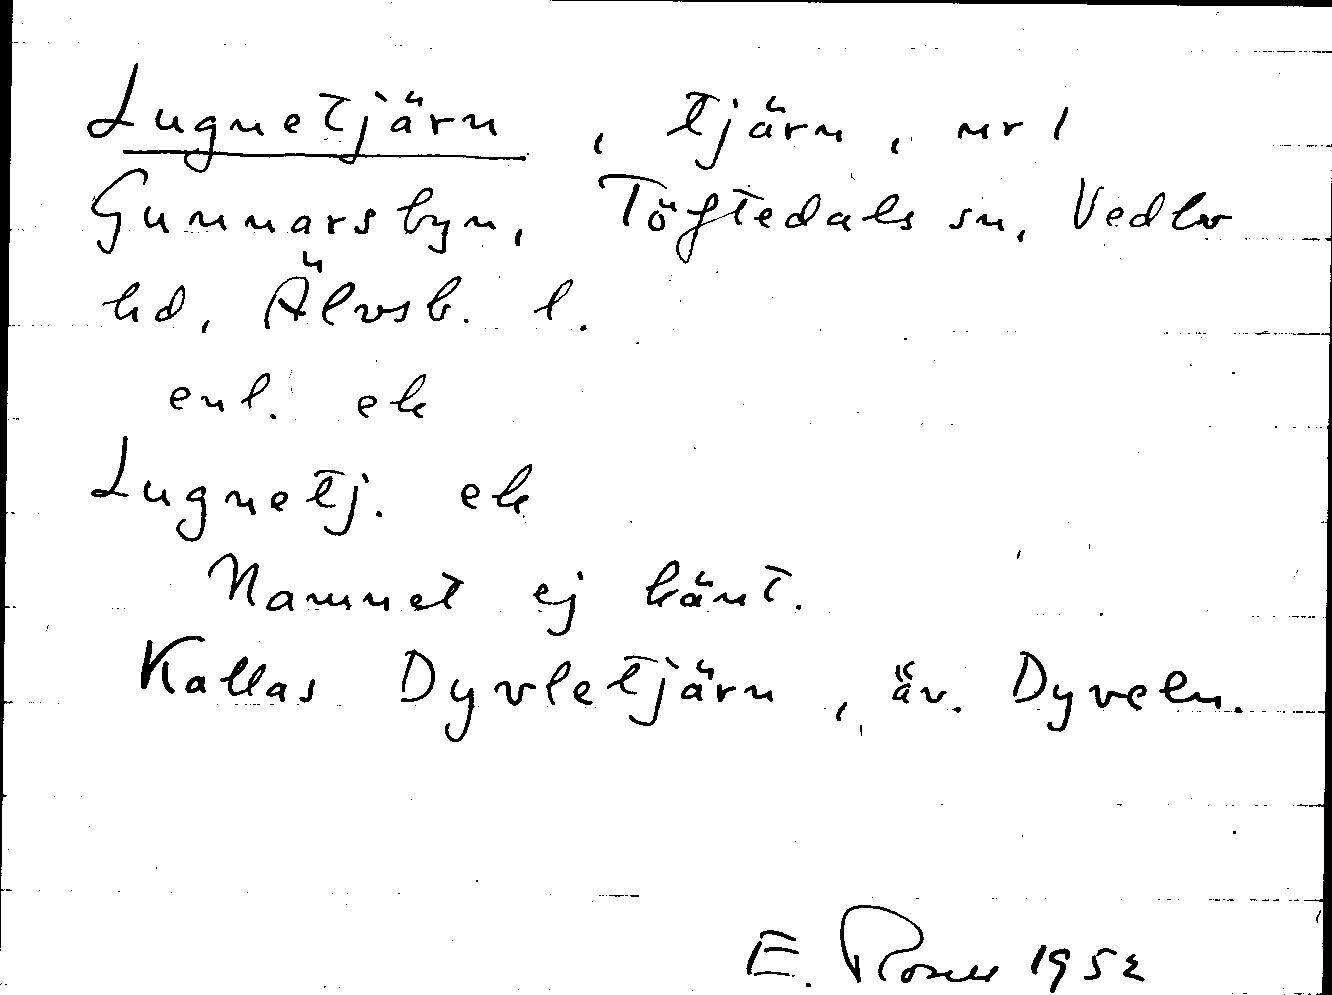 Lugnetjärn, tjärn, nr 1
Gunnarsbyn, Töftedals sn, Vedbo
hd, Älvsb. l.
enl. ek
Lugnetj. ek
Namnet ej känt.
Kallas Dyvletjärn, äv. Dyveln.
E. Rosell 1952